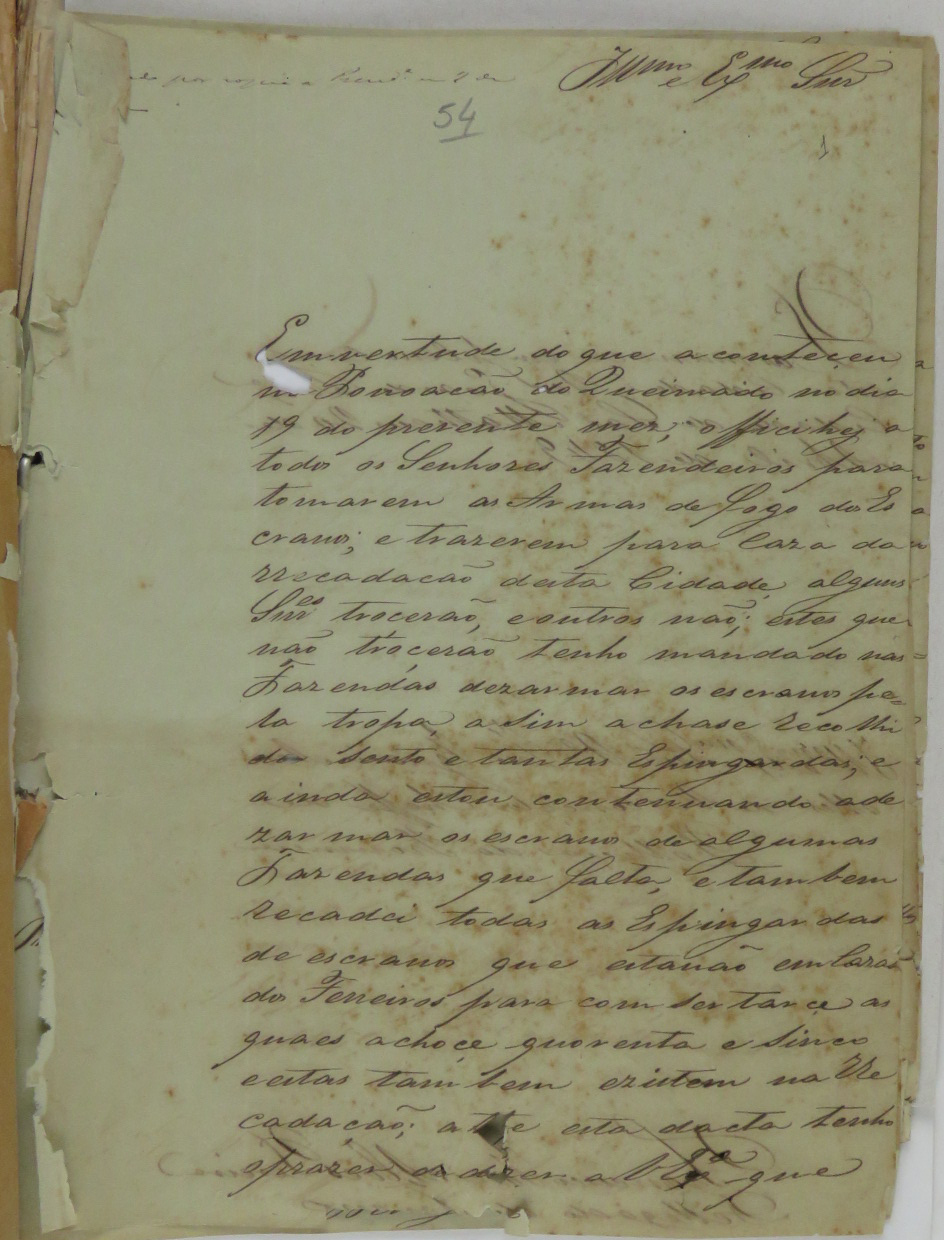 Illmo e Exmo Snr
54
1
Em vertude do que aconteçeu
na Povoacão do Queimado no dia
19 do prezente mez, officihej a
todo os Senhores Fazendeiros para
tomarem as Armas de fogo dos Es
cravos, e trazerem para Caza da
rrecadacão desta Cidade, alguns
Snres trocerão, e outros não; estes que
não trocerão tenho mandado nas
Fazendas dezarmar os escravos pe=
la tropa, a sim achase recolhi
dos sento e tantas Espingardas; e
ainda estou contenuando a de
zarmar os escravos de algumas
Fazendas que falta, e tambem
recadei todas as Espingardas
de escravos que estavão em Cazas
dos Ferreiros para comsertarçe as
quaes achoçe quorenta e sinco
e estas tambem ezistem na Re
cadação; athe esta dacta tenho
o prazer de dizer a V Exª que